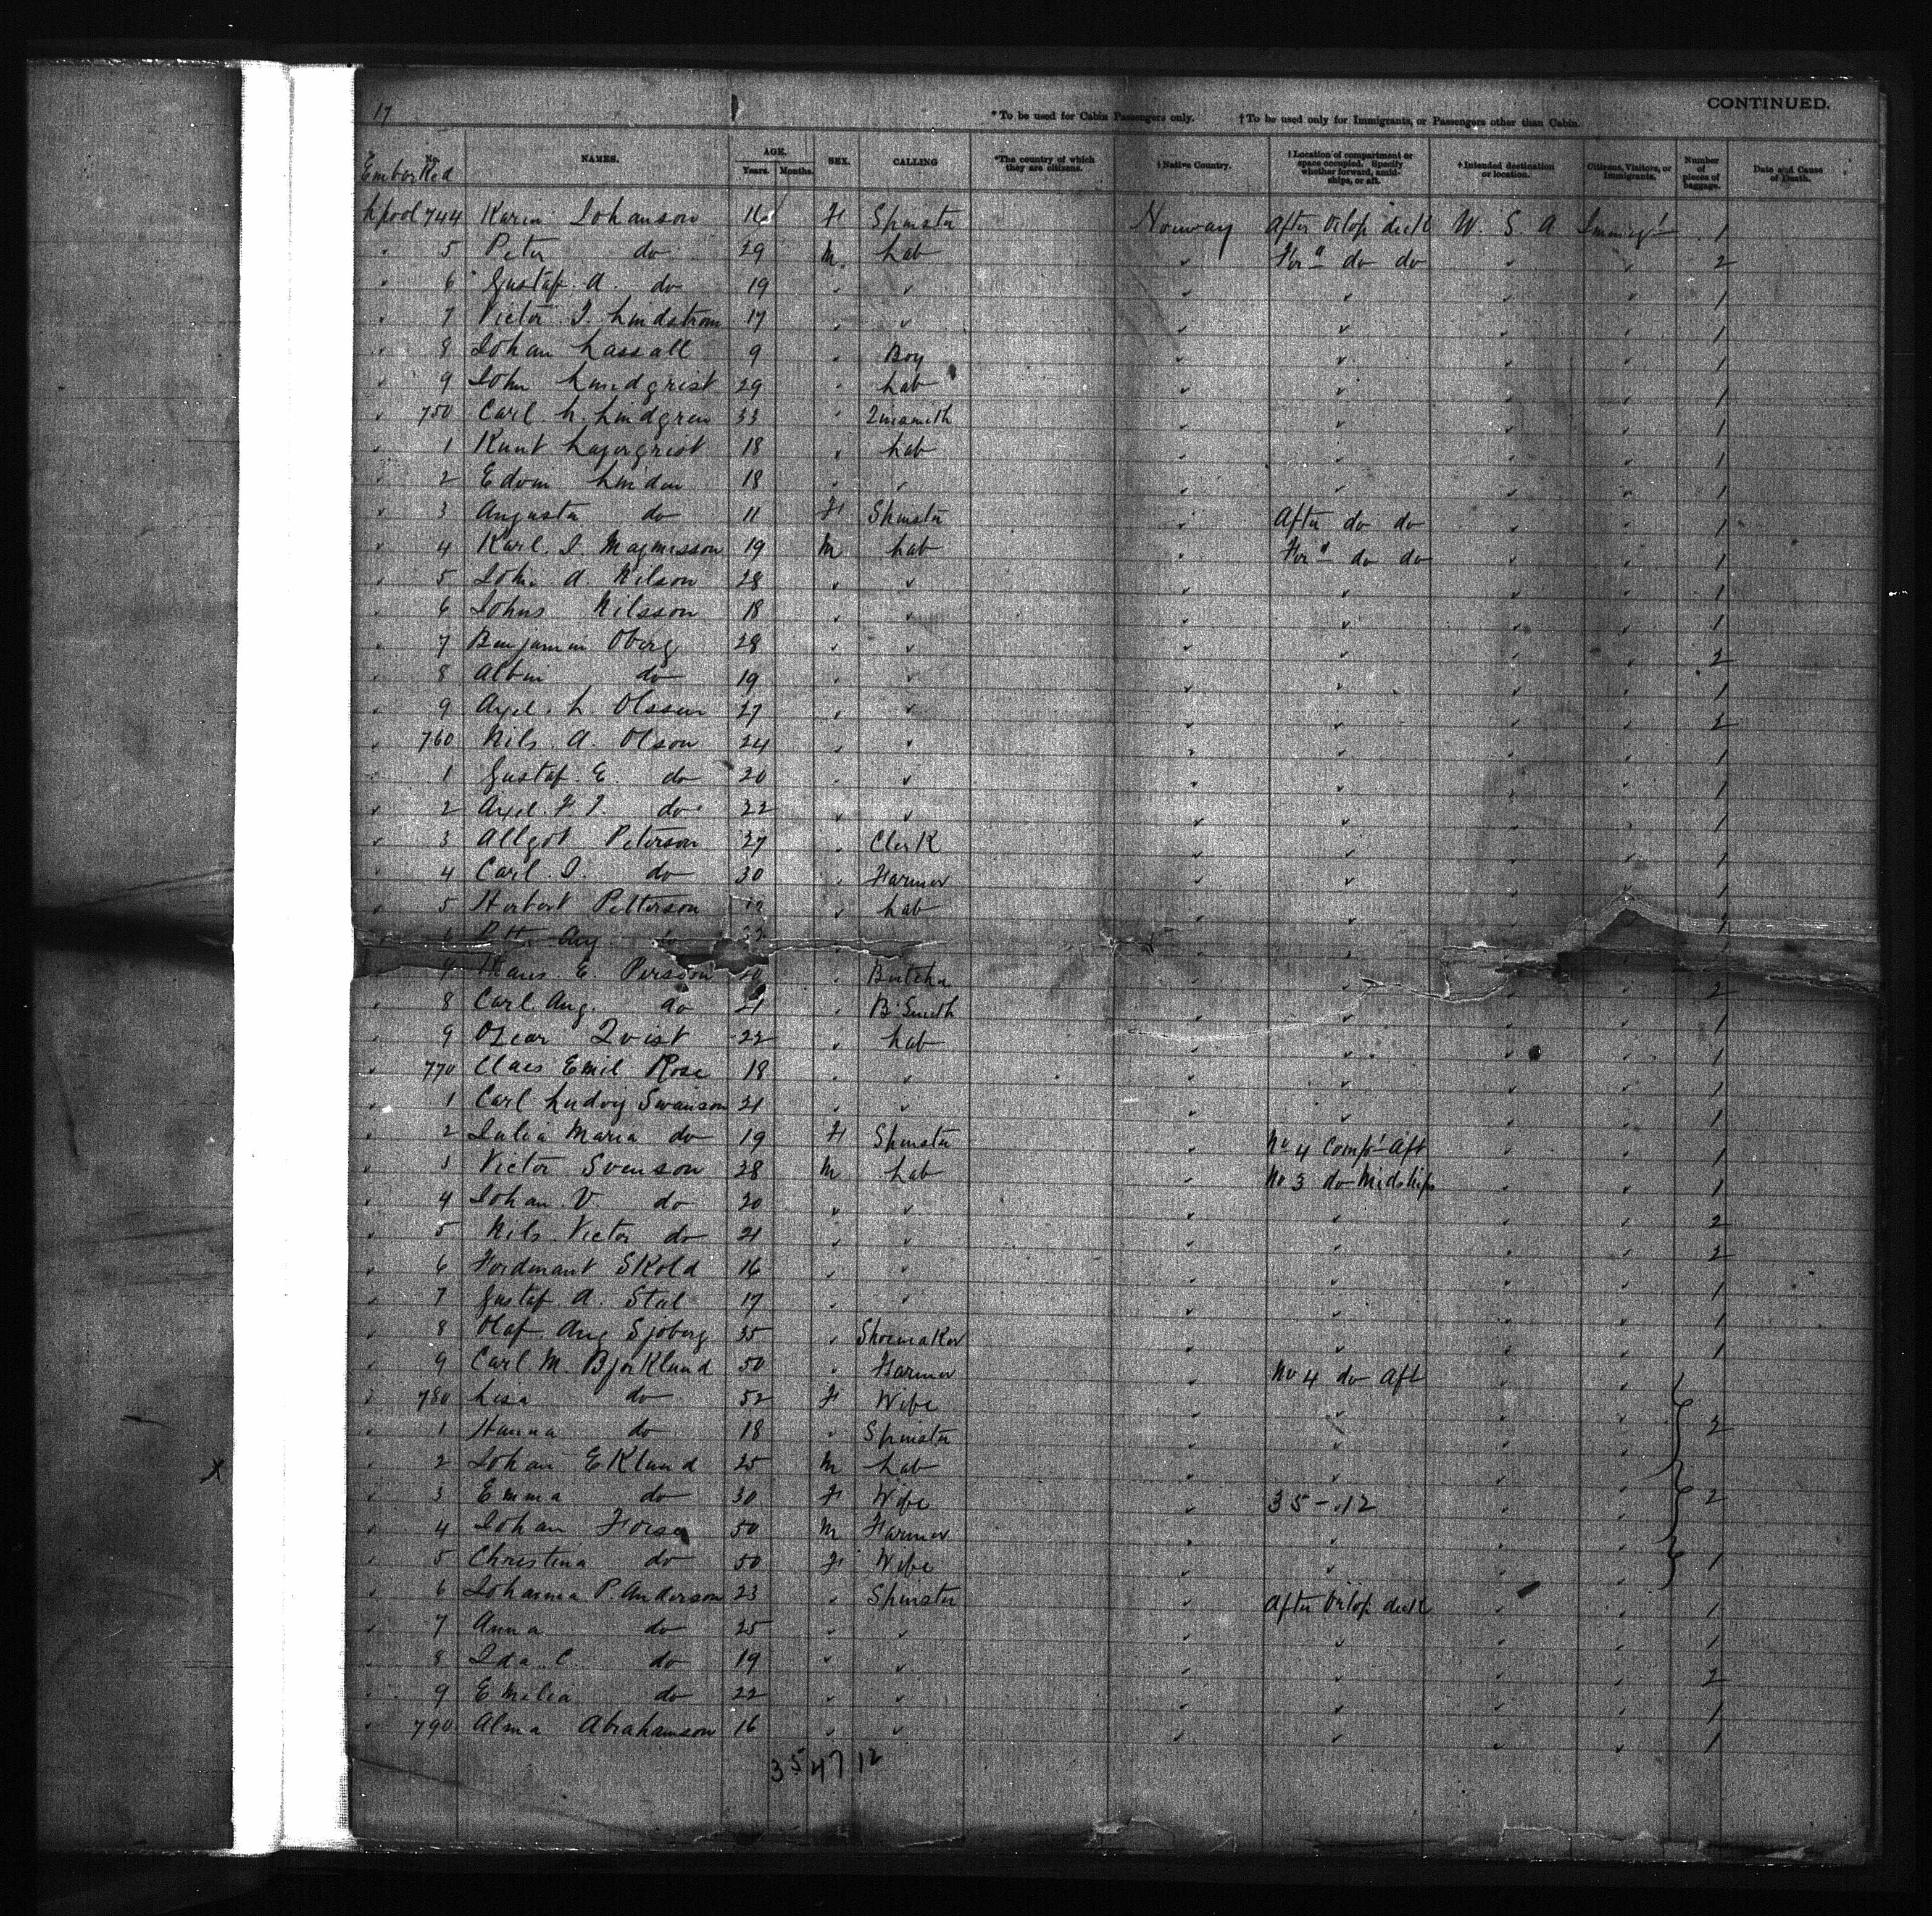 17
CONTINUED.
* To be used for Cabin Passengers only. † To be used only for Immigrants, or Passengers other than Cabin.
No. NAMES. AGE. Years. Months. SEX. CALLING *The country of which they are citizens. †Native Country. †Location of compartment or space occupied. Specify whether forward, amidships, or aft. †Intended destination or location. Citizens, Visitors, or Immigrants. Number of pieces of baggage. Date and Cause of Death.
Embarked
L'pool 744 Karin Johanson 16 F Spinster Norway After Orlop deck U. S. A Immigt 1
" 5 Peter do 29 M Lab " For'd do do " " 2
" 6 Gustaf. A. do 19 " " " " " " 1
" 7 Victor J Lindstrom 17 " " " " " " 1
" 8 Johan Lassall 9 " Boy " " " " 1
" 9 John Lindqrist 29 " Lab " " " " 1
" 750 Carl L. Lindgren 33 " Tinsmith " " " " 1
" 1 Knut Lagerqrist 18 " Lab " " " " 1
" 2 Edvin Linden 18 " " " " " " 1
" 3 Augusta do 11 F Spinster " After do do " " 1
" 4 Karl. J. Magnusson 19 M Lab " For'd do do " " 1
" 5 John A. Nilson 28 " " " " " " 1
" 6 Johns Nilsson 18 " " " " " " 1
" 7 Benjamin Oberg 28 " " " " " " 2
" 8 Albin do 19 " " " " " " 1
" 9 Axel. L Olssen 27 " " " " " " 2
" 760 Nils. A. Olson 24 " " " " " " 1
" 1 Gustaf. E. do 20 " " " " " " 1
" 2 Axel. F. J. do 22 " " " " " " 1
" 3 Allgot Peterson 27 " Clerk " " " " 1
" 4 Carl. J. do 30 " Farmer " " " " 1
" 5 Herbert Petterson " Lab " " " " 1
" 6 Aug do
7 Hans. E. Persson " Butcher " " " 2
" 8 Carl. Aug. do 21 " B. Smith " " " " 1
" 9 Oscar Qvist 22 " Lab " " " " 1
" 770 Claes Emil Rose 18 " " " " " " 1
" 1 Carl Ludvig Swanson 21 " " " " " " 1
" 2 Julia Maria do 19 F Spinster " No 4 Compt Aft " " 1
" 3 Victor Svenson 28 M Lab " No 3 do Midships " " 1
" 4 Johan V. do 20 " " " " " " 2
" 5 Nils Victor do 21 " " " " " " 2
" 6 Ferdinant Skold 16 " " " " " " 1
" 7 Gustaf A. Stal 17 " " " " " " 1
" 8 Olaf Aug Sjoberg 35 " Shoemaker " " " " 1
" 9 Carl M. Bjorklund 50 " Farmer " No 4 do Aft " "
" 780 Lisa do 52 F Wife " " " "
" 1 Hanna do 18 " Spinster " " " " 3
" 2 Johan Eklund 25 M Lab " " " "
" 3 Emma do 30 F Wife " 35-12 " " 2
" 4 Johan 50 M Farmer " " " "
" 5 Christina do 50 F Wife " " " " 1
" 6 Johanna P. Anderson 23 " Spinster " After Orlop deck " " 1
" 7 Anna do 25 " " " " " " 1
" 8 Ida. C. do 19 " " " " " " 2
" 9 Emilia do 22 " " " " " " 1
" 790 Alma Abrahamson 16 " " " " " " 1
35 47 12
X